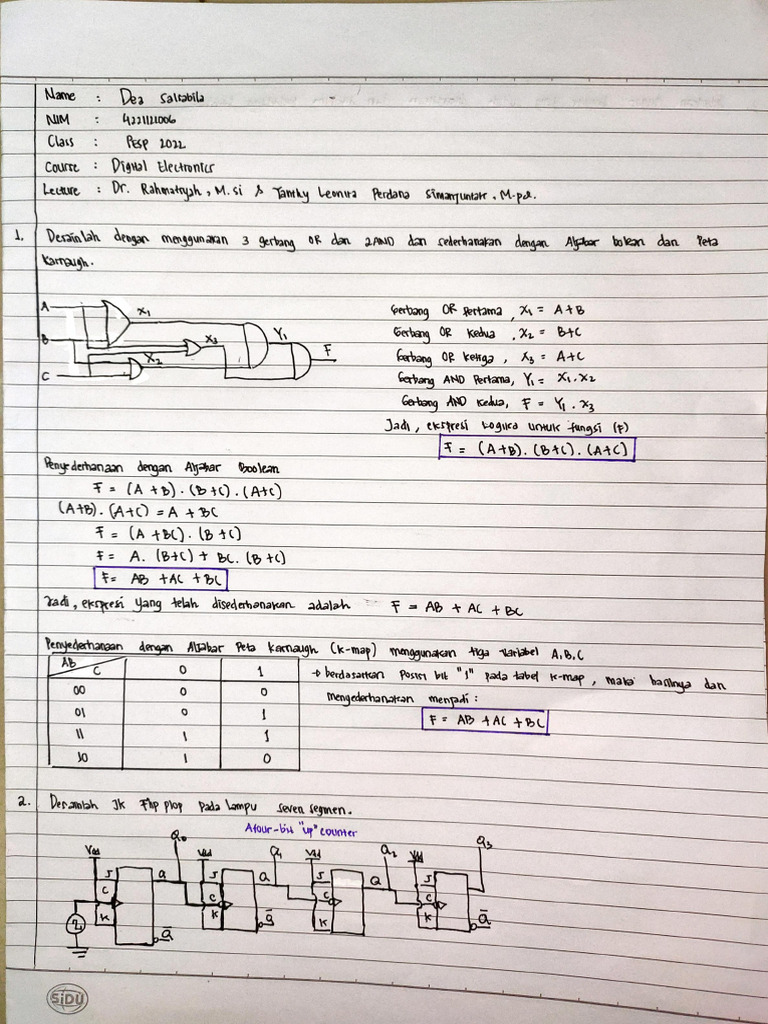 Name : Dea Salsabila
NIM : 4221121006
Class : PESP 2022
Course : Digital Electronics
Lecture : Dr. Rahmatsyah, M.Si & Tanthy Leonita Perdana Simanjuntak, M.pd.
1. Desainlah dengan menggunakan 3 gerbang OR dan 2AND dan sederhanakan dengan Aljabar bolean dan Peta
Karnaugh.
A
B
C
X1
X2
X3
Y1
F
Gerbang OR Pertama, X1 = A+B
Gerbang OR Kedua, X2 = B+C
Gerbang OR Ketiga, X3 = A+C
Gerbang AND Pertama, Y1 = X1.X2
Gerbang AND Kedua, F = Y1 . X3
Jadi, ekspresi Logika untuk fungsi (F)
F = (A+B). (B+C). (A+C)
Penyederhanaan dengan Aljabar Boolean
F = (A +B). (B+C). (A+C)
(A+B). (A+C) = A + BC
F = (A +BC). (B+C)
F = A. (B+C) + BC. (B+C)
F= AB +AC +BC
Jadi, ekspresi yang telah disederhanakan adalah F = AB + AC + BC
Penyederhanaan dengan Aljabar Peta Karnaugh (k-map) menggunakan tiga variabel A,B,C
AB C 0 1
00 0 0
01 0 1
11 1 1
10 1 0
→ berdasarkan posisi bit "1" pada tabel k-map, maka hasilnya dan
mengederhanakan menjadi:
F = AB +AC +BC
2. Desainlah Jk Flip plop pada Lampu seven segmen.
A four-bit "up" counter
Q0 Q1 Q2 Q3
Vdd Vdd Vdd Vdd
J Q J Q J Q J
C C C C
K K K K
Q̄ Q̄ Q̄ Q̄
SiDU